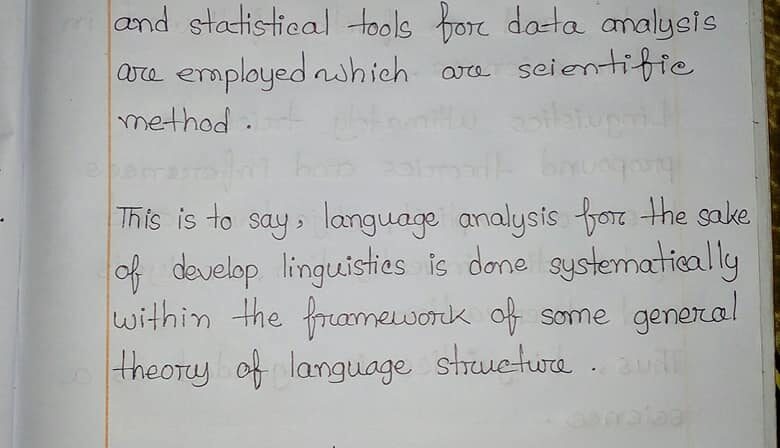 and statistical tools for data analysis
are employed which are scientific
method.
This is to say, language analysis for the sake
of develop linguistics is done systematically
within the framework of some general
theory of language structure.